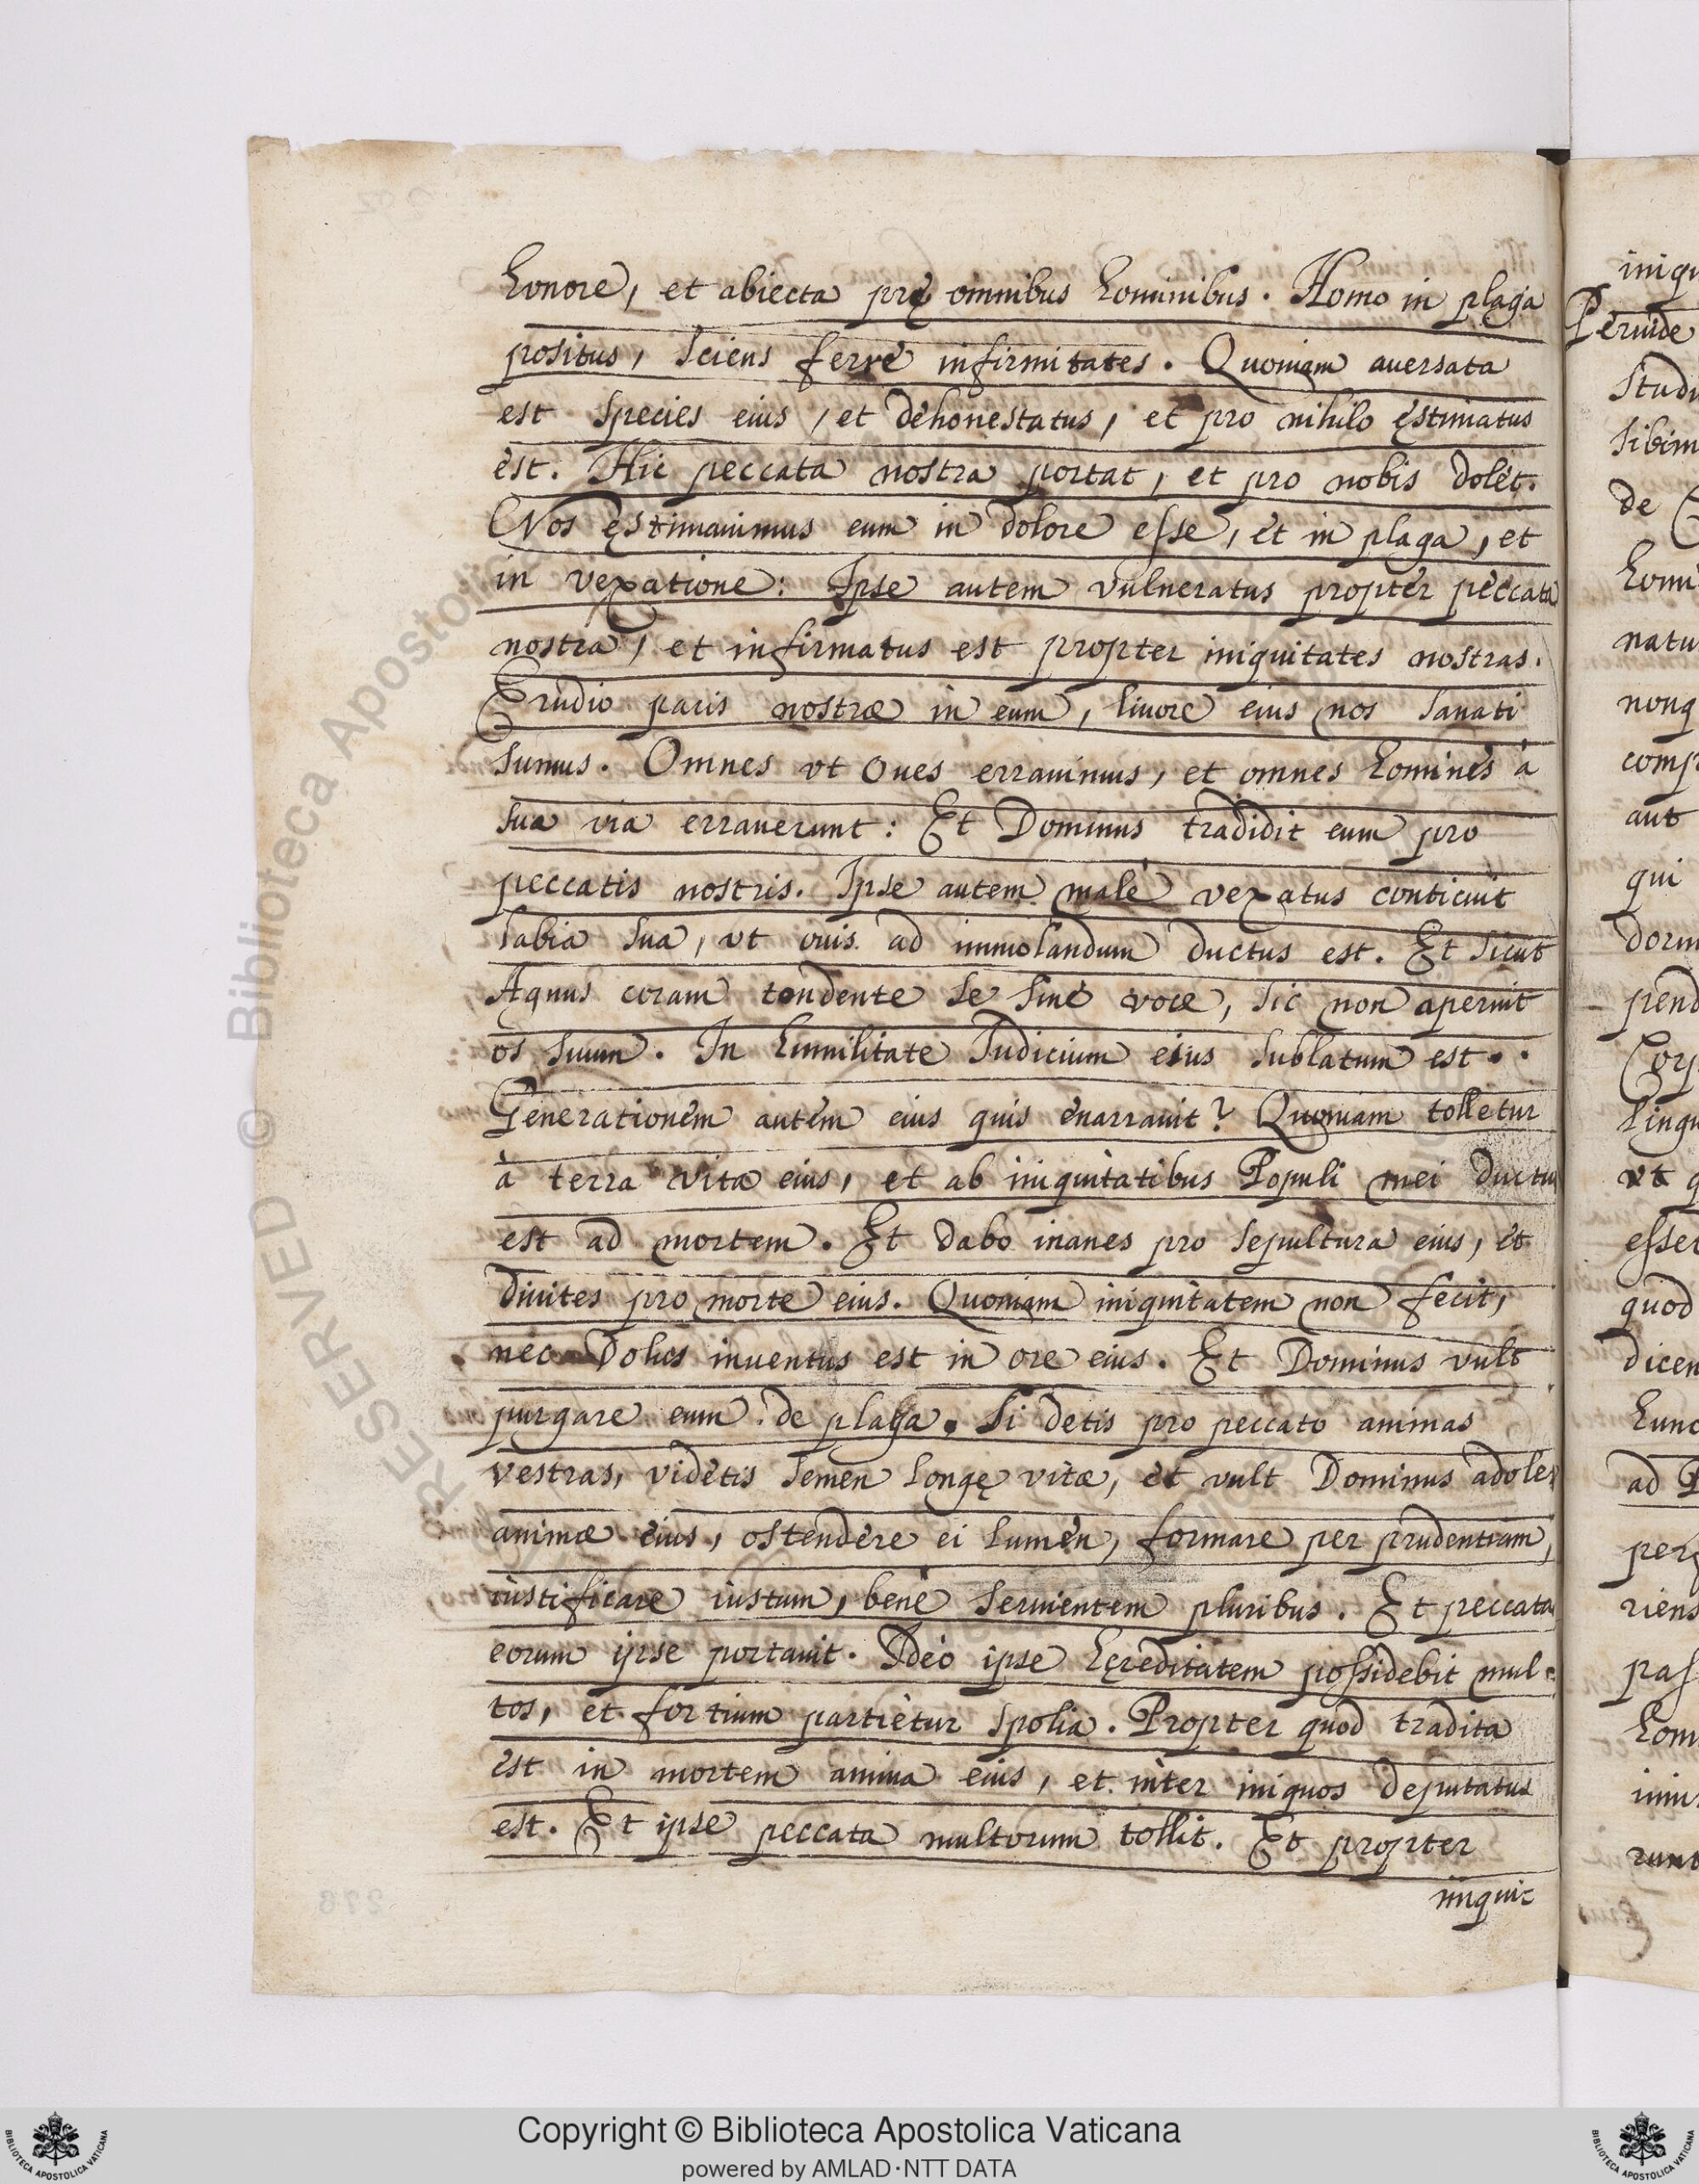 honore, et abiecta prę omnibus hominibus. Homo in plaga
positus, sciens ferre infirmitates. Quoniam auersata
est species eius, et dehonestatus, et pro nihilo ęstimatus
est. Hic peccata nostra portat, et pro nobis dolet.
Nos ęstimauimus eum in dolore esse, et in plaga, et
in vexatione: Ipse autem vulneratus propter peccata
nostra, et infirmatus est propter iniquitates nostras.
Erudio pacis nostræ in eum, liuore eius nos sanati
sumus. Omnes vt oues errauimus, et omnes homines à
sua via errauerunt: Et Dominus tradidit eum pro
peccatis nostris. Ipse autem malè vexatus conticuit
labia sua, vt ouis ad immolandum ductus est. Et sicut
Agnus coram tondente se sine voce, sic non aperuit
os suum. In humilitate Iudicium eius sublatum est.
Generationem autem eius quis enarrauit? Quoniam tolletur
à terra vita eius, et ab iniquitatibus Populi mei ductu
est ad mortem. Et dabo inanes pro sepultura eius, et
diuites pro morte eius. Quoniam iniquitatem non fecit,
nec dolus inuentus est in ore eius. Et Dominus vult
purgare eum de plaga. Si detis pro peccato animas
vestras, videtis semen longę vitæ, et vult Dominus adoler
animæ eius, ostendere ei lumen, formare per prudentiam,
iustificare iustum, benè seruientem pluribus. Et peccata
eorum ipse portauit. Ideò ipse hęreditatem possidebit mul-
tos, et fortium partietur spolia. Propter quod tradita
est in mortem anima eius, et inter iniquos deputatus
est. Et ipse peccata multorum tollit. Et propter
iniqui-
iniqu
Peruide
studi
sibim
de
homi
natu
nonq
comp
aut
qui
dorm
pend
Corp
lingu
vt q
esser
quod
dicen
hunc
ad P
perq
riens
pas
hom
imi
runt
RESERVED © Biblioteca Apostolica
Copyright © Biblioteca Apostolica Vaticana
powered by AMLAD·NTT DATA
BIBLIOTECA APOSTOLICA VATICANA
BIBLIOTECA APOSTOLICA VATICANA